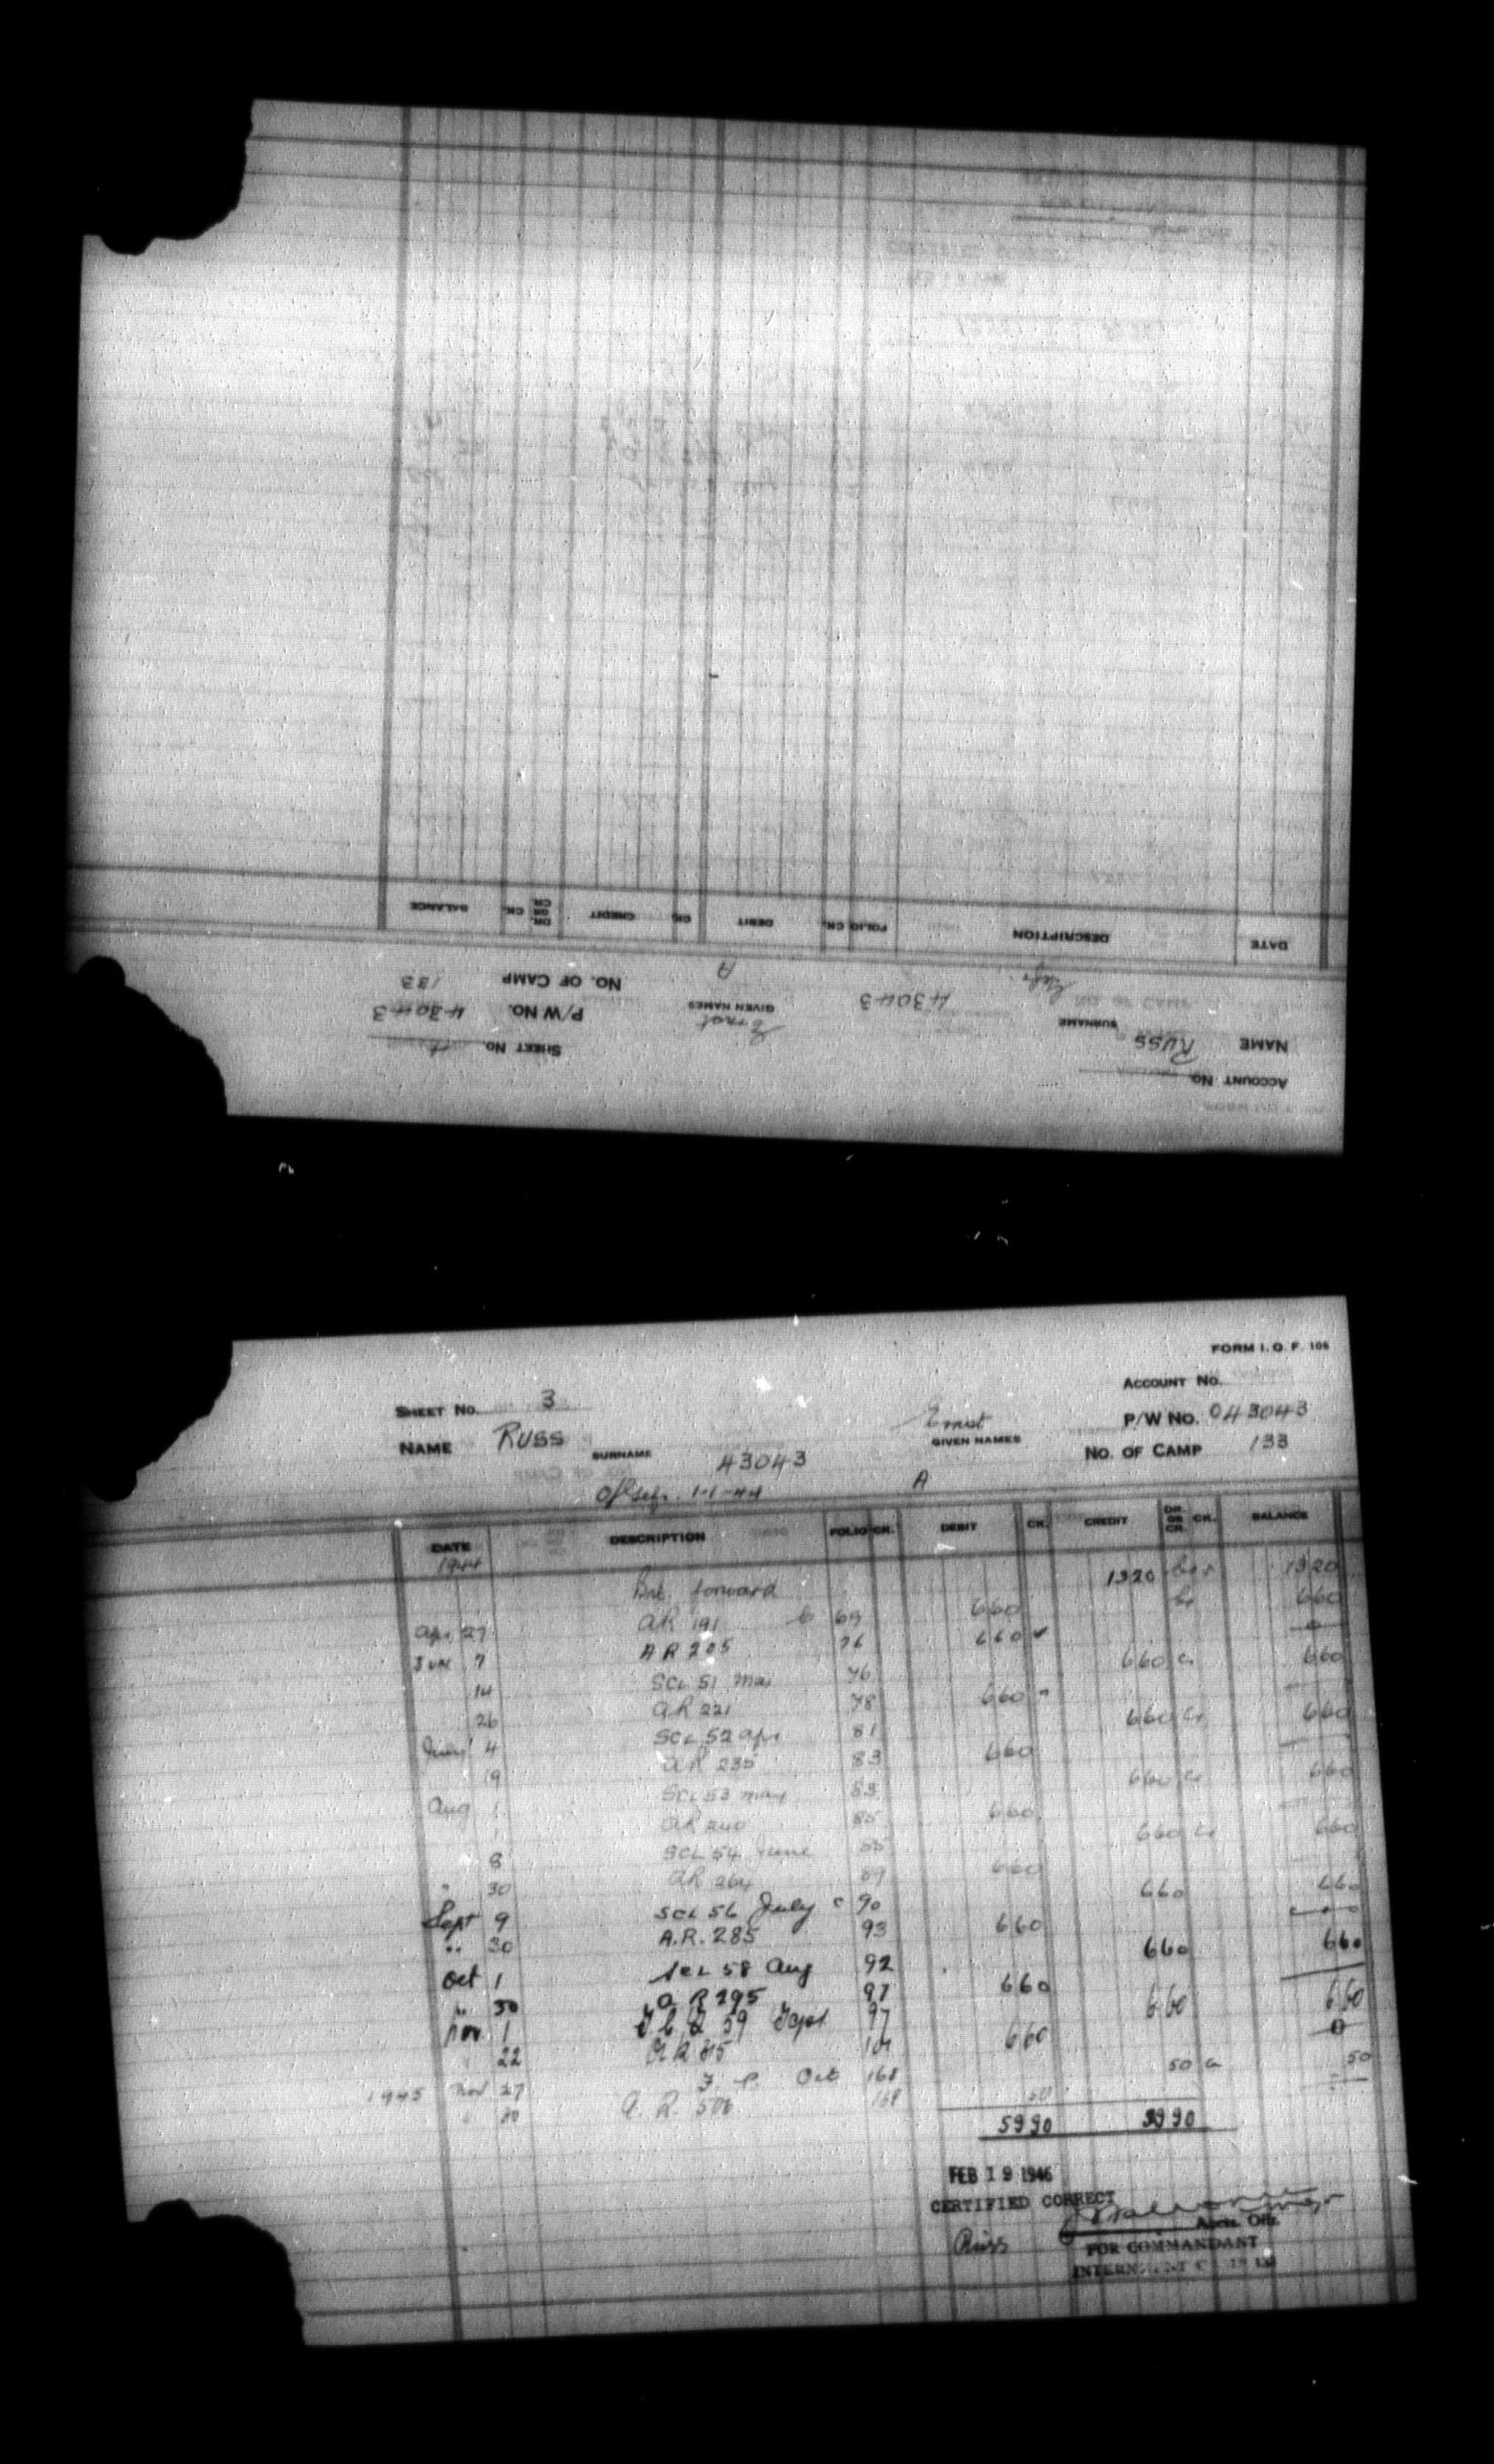 ACCOUNT No.
NAME Russ SURNAME 43043 Ernst GIVEN NAMES
SHEET No. 4
P/W No. 43043
No. OF CAMP 133
A
DATE DESCRIPTION FOLIO CK. DEBIT CK. CREDIT DR. OR CR. CK. BALANCE
FORM I. O. F. 106
ACCOUNT No.
SHEET No. 3
P/W No. 043043
NAME Russ SURNAME 43043 Ernst GIVEN NAMES
No. OF CAMP 133
1-1-44 A
DATE DESCRIPTION FOLIO CK. DEBIT CK. CREDIT DR. OR CR. CK. BALANCE
1944
forward 1320 1320
Apr 27 AR 191 69 660 660
June 7 AR 205 76 660 0
14 SCL 51 Mar 76 660 Cr 660
26 AR 221 78 660
July 4 SCL 52 Apr 81 660 Cr 660
19 AR 235 83 660
Aug 1 SCL 53 May 83 660 Cr 660
1 AR 240 85 660
8 SCL 54 June 85 660 Cr 660
" 30 AR 264 89 660
Sept 9 SCL 56 July c 90 660 660
" 30 A.R. 285 93 660
Oct 1 SCL 58 Aug 92 660 660
" 30 A R 295 97 660
Nov 1 59 Sept 97 660 660
22 AR 315 101 660 0
1945 Nov 27 Oct 168 50 Cr 50
A. R. 168 50
5990 5990
FEB 19 1946
CERTIFIED CORRECT
Russ Accts. Offr.
FOR COMMANDANT